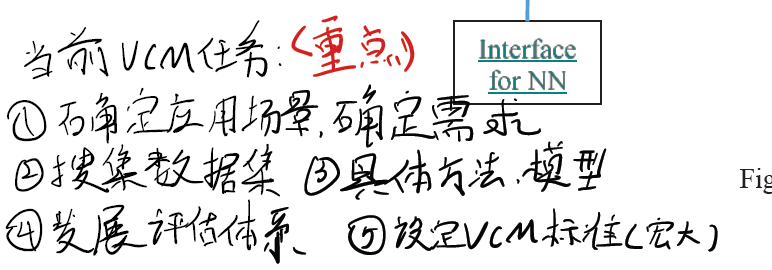 当前VCM任务:(重点)
Interface
for NN
①确定应用场景,确定需求
②搜集数据集 ③具体方法、模型
Fig
④发展评估体系、 ⑤设定VCM标准(宏大)